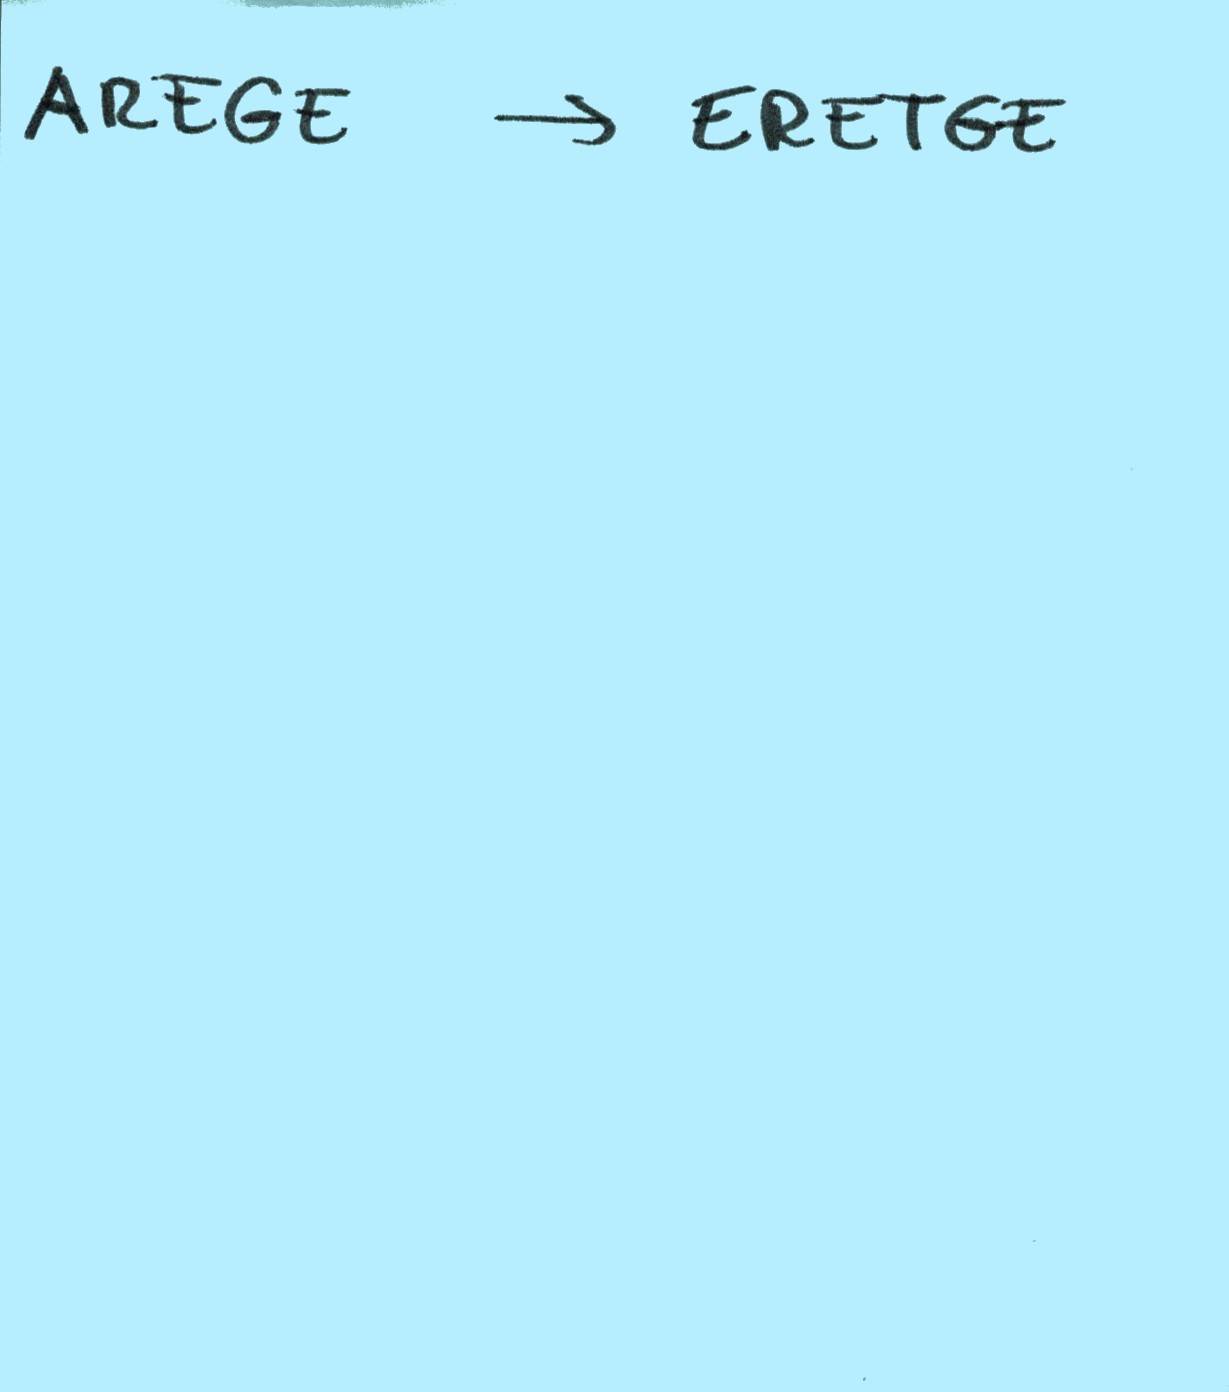 AREGE → ERETGE